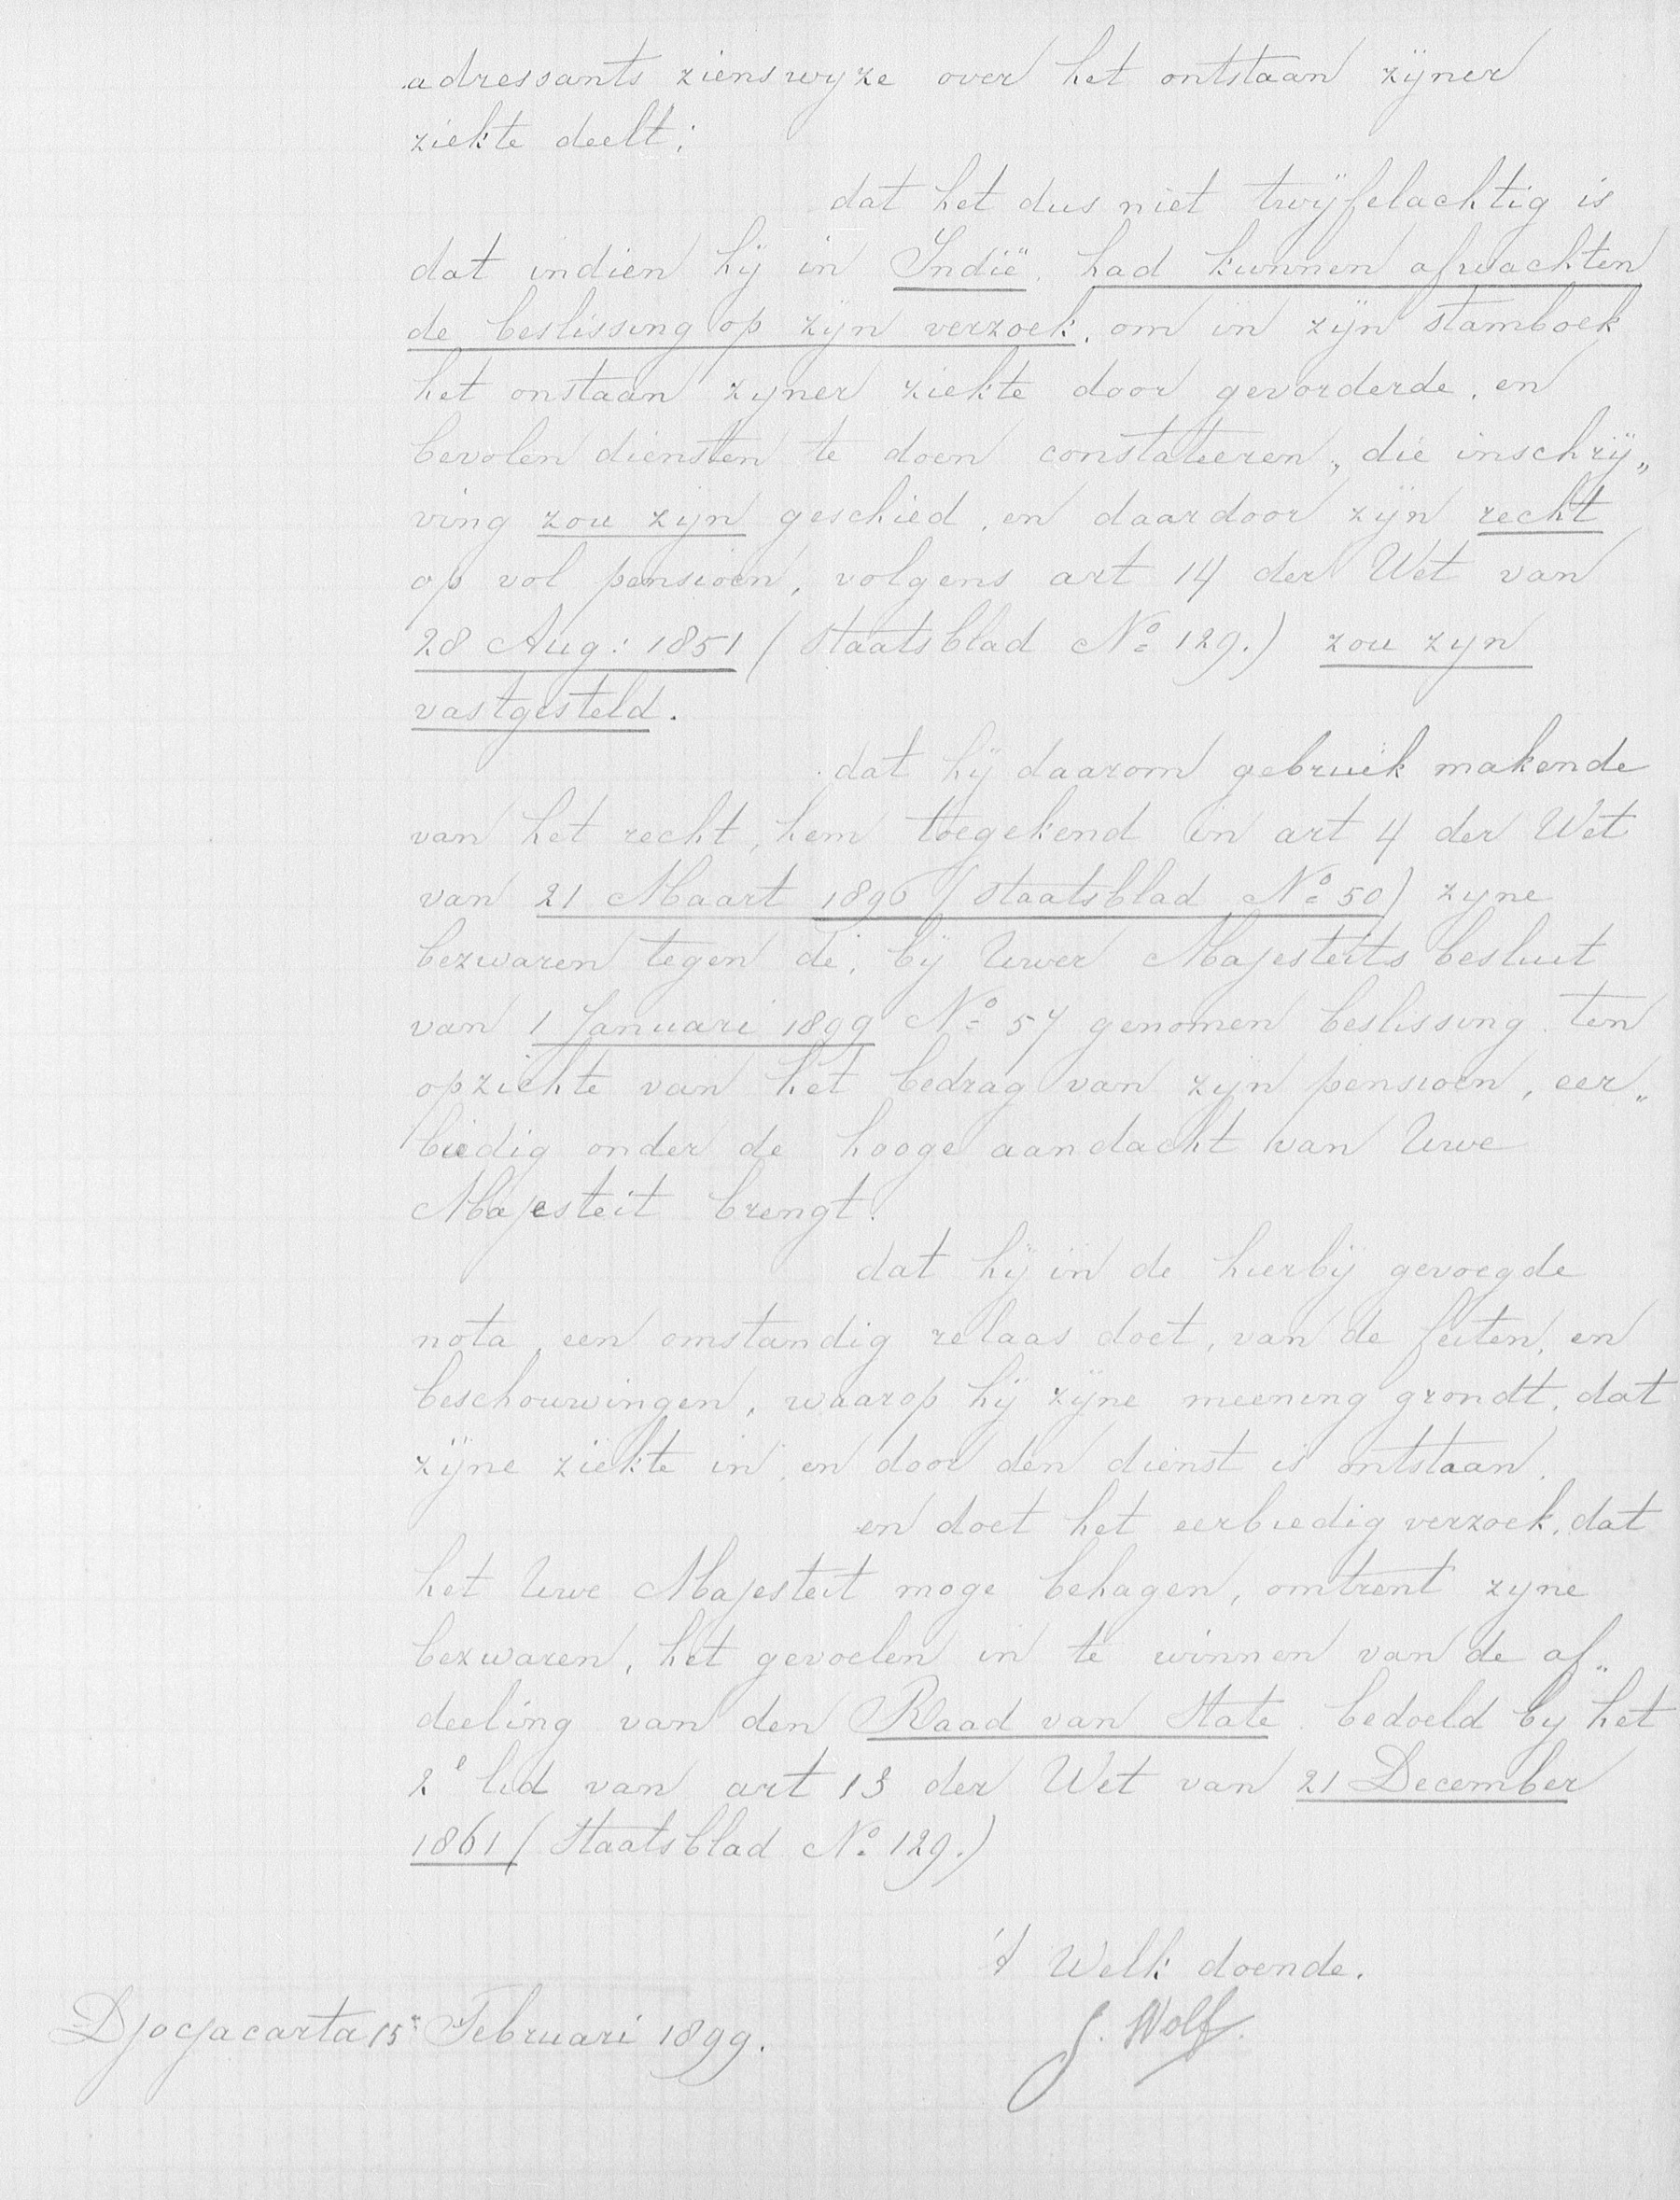 adressants zienswyze over het ontstaan zijner
ziekte deelt;
dat het dus niet twijfelachtig is
dat indien hij in Indië, had kunnen afwachten
de beslissing op zijn verzoek, om in zijn stamboek
het onstaan zyner ziekte door gevorderde, en
bevolen diensten te doen constateeren, die inschrij„
ving zou zijn geschied, en daardoor zijn recht
op vol pensioen, volgens art 14 der Wet van
28 Aug: 1851 (Staatsblad No 129.) zou zyn
vastgesteld.
dat hij daarom gebruik makende
van het recht, hem toegekend in art 4 der Wet
van 21 Maart 1896 (Staatsblad No 50) zyne
bezwaren tegen de, bij Uwer Majesteits besluit
van 1 Januari 1899 No 57 genomen beslissing ten
opzichte van het bedrag van zijn pensioen, eer„
biedig onder de hooge aandacht van Uwe
Majesteit brengt.
dat hij in de hierbij gevoegde
nota, een omstandig relaas doet, van de feiten, en
beschouwingen, waarop hij zijne meening grondt, dat
zijne ziekte in, en door den dienst is ontstaan.
en doet het eerbiedig verzoek, dat
het Uwe Majesteit moge behagen, omtrent zyne
bezwaren, het gevoelen in te winnen van de af„
deeling van den Raad van State bedoeld by het
2e lid van art 13 der Wet van 21 December
1861 (Staatsblad No 129.)
't Welk doende.
J. Wolf.
Djocjacarta 15n Februari 1899.